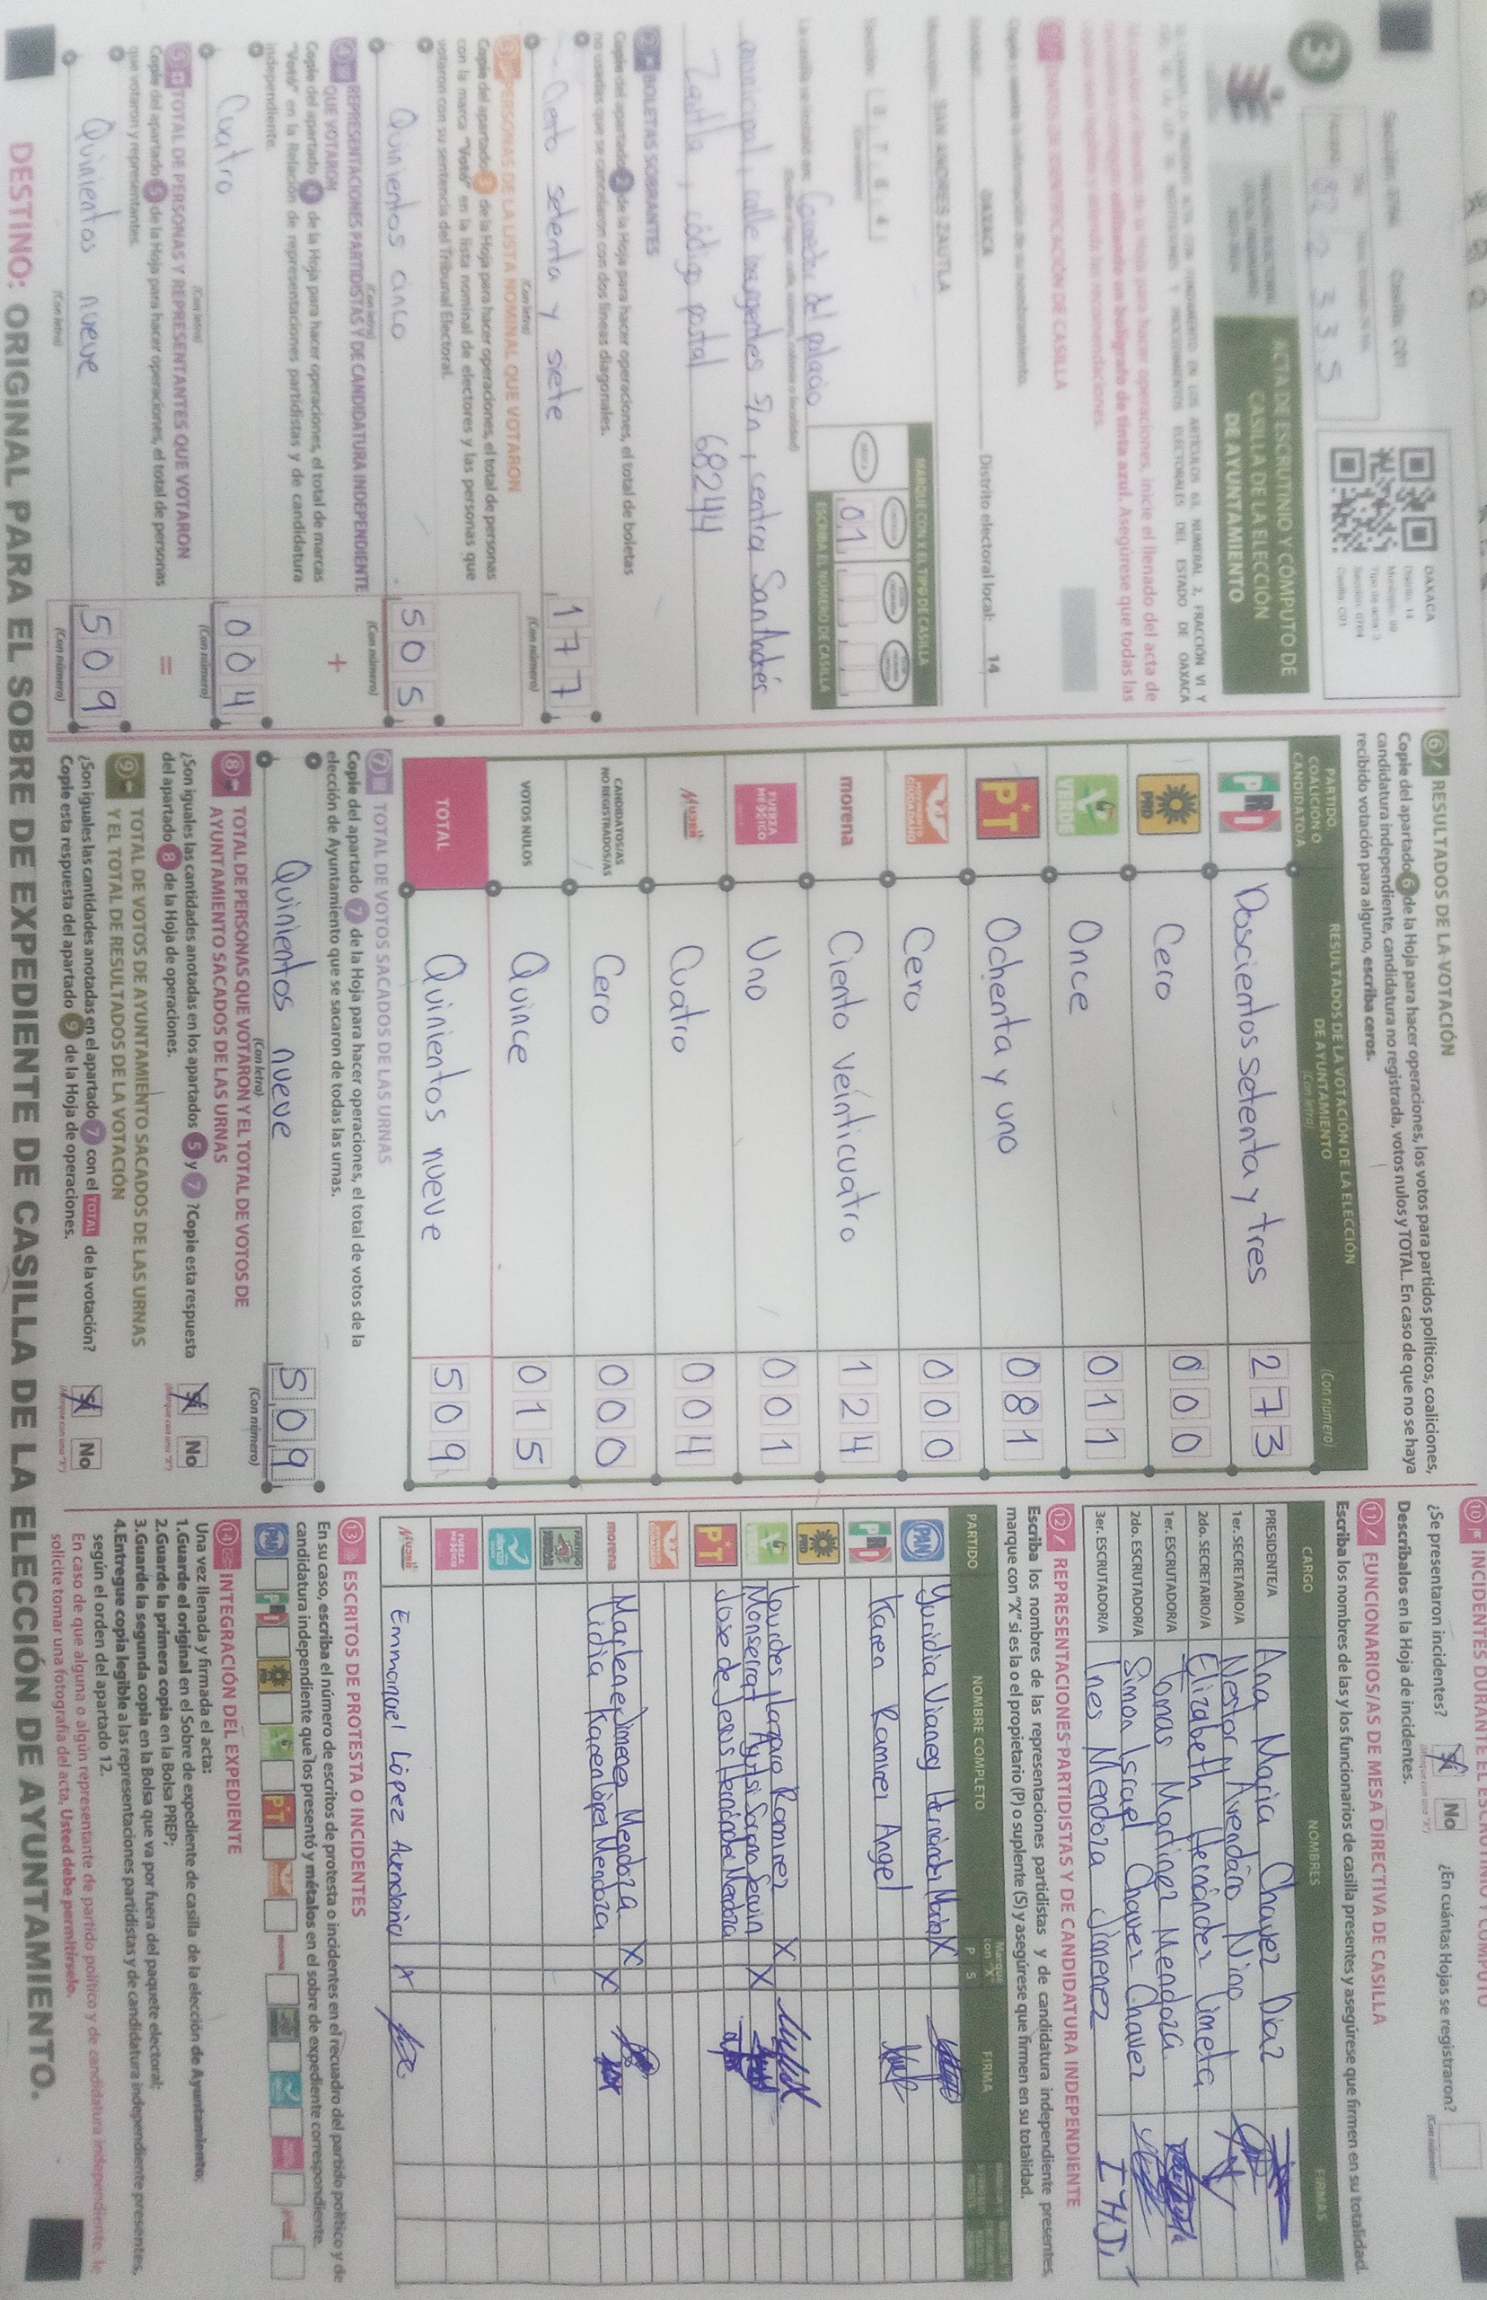 OAXACA
Distrito: 14
Tipo de acta: 3
Casilla: C01
3
ACTA DE ESCRUTINIO Y CÓMPUTO DE
CASILLA DE LA ELECCIÓN
DE AYUNTAMIENTO
inicie el llenado del acta de
utilizando un bolígrafo de tinta azul. Asegúrese que todas las
DATOS DE IDENTIFICACIÓN DE CASILLA
OAXACA
Distrito electoral local: 14
SAN ANDRES ZAUTLA
MARQUE CON X EL TIPO DE CASILLA
ESCRIBA EL NÚMERO DE CASILLA
01
Corredor del palacio
municipal, calle Insurgentes S/n, centro San Andrés
Zautla, código postal 68244
2 BOLETAS SOBRANTES
Copie del apartado 2 de la Hoja para hacer operaciones, el total de boletas
no usadas que se cancelaron con dos líneas diagonales.
Ciento setenta y siete 177
(Con letra) (Con número)
3 PERSONAS DE LA LISTA NOMINAL QUE VOTARON
Copie del apartado 3 de la Hoja para hacer operaciones, el total de personas
con la marca "Votó" en la lista nominal de electores y las personas que
votaron con su sentencia del Tribunal Electoral.
Quinientos cinco 505
(Con letra) (Con número)
4 REPRESENTACIONES PARTIDISTAS Y DE CANDIDATURA INDEPENDIENTE
QUE VOTARON
+
Copie del apartado 4 de la Hoja para hacer operaciones, el total de marcas
"Votó" en la Relación de representaciones partidistas y de candidatura
independiente.
Cuatro 004
(Con letra) (Con número)
5 TOTAL DE PERSONAS Y REPRESENTANTES QUE VOTARON
=
Copie del apartado 5 de la Hoja para hacer operaciones, el total de personas
que votaron y representantes.
Quinientos nueve 509
(Con letra) (Con número)
6 RESULTADOS DE LA VOTACIÓN
Copie del apartado 6 de la Hoja para hacer operaciones, los votos para partidos políticos, coaliciones,
candidatura independiente, candidatura no registrada, votos nulos y TOTAL. En caso de que no se haya
recibido votación para alguno, escriba ceros.
PARTIDO, COALICIÓN O CANDIDATO/A RESULTADOS DE LA VOTACIÓN DE LA ELECCIÓN DE AYUNTAMIENTO (Con letra) (Con número)
PRI Doscientos setenta y tres 273
PRD Cero 000
VERDE Once 011
PT Ochenta y uno 081
MOVIMIENTO CIUDADANO Cero 000
morena Ciento veinticuatro 124
FUERZA MEXICO Uno 001
MUJER Cuatro 004
CANDIDATOS/AS NO REGISTRADOS/AS Cero 000
VOTOS NULOS Quince 015
TOTAL Quinientos nueve 509
7 TOTAL DE VOTOS SACADOS DE LAS URNAS
Copie del apartado 7 de la Hoja para hacer operaciones, el total de votos de la
elección de Ayuntamiento que se sacaron de todas las urnas.
Quinientos nueve 509
(Con letra) (Con número)
8 TOTAL DE PERSONAS QUE VOTARON Y EL TOTAL DE VOTOS DE
AYUNTAMIENTO SACADOS DE LAS URNAS
¿Son iguales las cantidades anotadas en los apartados 5 y 7? Copie esta respuesta
del apartado 8 de la Hoja de operaciones.
Sí No
9 TOTAL DE VOTOS DE AYUNTAMIENTO SACADOS DE LAS URNAS
Y EL TOTAL DE RESULTADOS DE LA VOTACIÓN
¿Son iguales las cantidades anotadas en el apartado 7 con el TOTAL de la votación?
Copie esta respuesta del apartado 9 de la Hoja de operaciones.
Sí No
10 INCIDENTES DURANTE EL ESCRUTINIO Y CÓMPUTO
¿Se presentaron incidentes? Sí No ¿En cuántas Hojas se registraron?
Descríbalos en la Hoja de incidentes.
11 FUNCIONARIOS/AS DE MESA DIRECTIVA DE CASILLA
Escriba los nombres de las y los funcionarios de casilla presentes y asegúrese que firmen en su totalidad.
CARGO NOMBRES FIRMAS
PRESIDENTE/A Ana Maria Chavez Diaz
1er. SECRETARIO/A Nestor Avendaño Nino
2do. SECRETARIO/A Elizabeth Hernández Limeta
1er. ESCRUTADOR/A Tomas Martinez Mendoza
2do. ESCRUTADOR/A Simon Israel Chavez Chavez
3er. ESCRUTADOR/A Ines Mendoza Jimenez I H J
12 REPRESENTACIONES PARTIDISTAS Y DE CANDIDATURA INDEPENDIENTE
Escriba los nombres de las representaciones partidistas y de candidatura independiente presentes,
marque con "X" si es la o el propietario (P) o suplente (S) y asegúrese que firmen en su totalidad.
PARTIDO NOMBRE COMPLETO Marque con "X" P S FIRMA
PAN Yuridia Vianey Hernández X
PRI Karen Ramirez Angel
PRD Lourdes Ramirez X
VERDE Monserrat X
PT Jose de Jesus Hernández Mendoza
morena Marlene Jimenez Mendoza X
Lidia Karen López Mendoza X
FUERZA MEXICO
MUJER Emmanuel López Avendaño X
13 ESCRITOS DE PROTESTA O INCIDENTES
En su caso, escriba el número de escritos de protesta o incidentes en el recuadro del partido político y de
candidatura independiente que los presentó y métalos en el sobre de expediente correspondiente.
PAN PRI PRD PT
14 INTEGRACIÓN DEL EXPEDIENTE
Una vez llenada y firmada el acta:
1.Guarde el original en el Sobre de expediente de casilla de la elección de Ayuntamiento;
2.Guarde la primera copia en la Bolsa PREP;
3.Guarde la segunda copia en la Bolsa que va por fuera del paquete electoral;
4.Entregue copia legible a las representaciones partidistas y de candidatura independiente presentes,
según el orden del apartado 12.
En caso de que alguna o algún representante de partido político y de candidatura independiente, le
solicite tomar una fotografía del acta, Usted debe permitírselo.
DESTINO: ORIGINAL PARA EL SOBRE DE EXPEDIENTE DE CASILLA DE LA ELECCIÓN DE AYUNTAMIENTO.